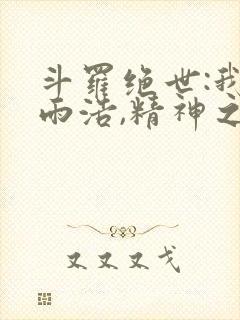 斗羅绝世:我
雨浩,精神之
又又又戈